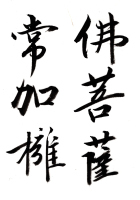 佛菩薩
常加擁